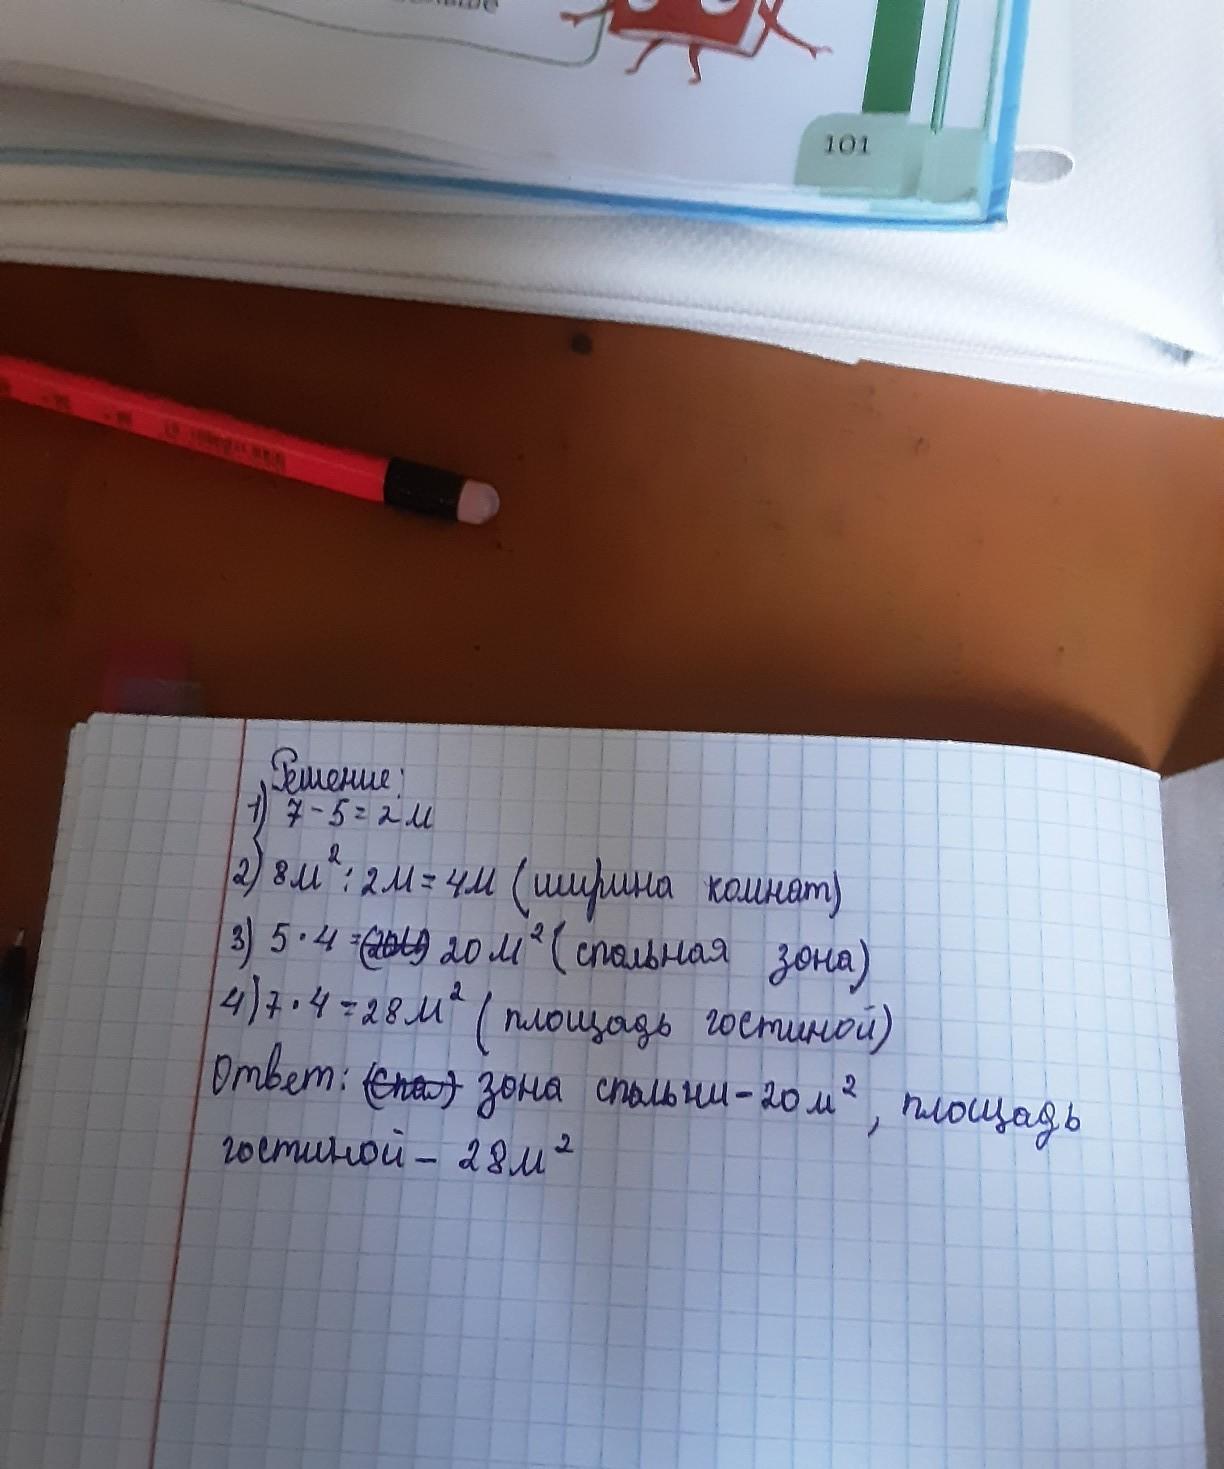 101
Решение:
1) 7-5=2м
2) 8м²:2м=4м (ширина комнат)
3) 5·4= 20м² (спальная зона)
4) 7·4=28м² (площадь гостиной)
Ответ: (спал) зона спальни-20м², площадь
гостиной- 28м²